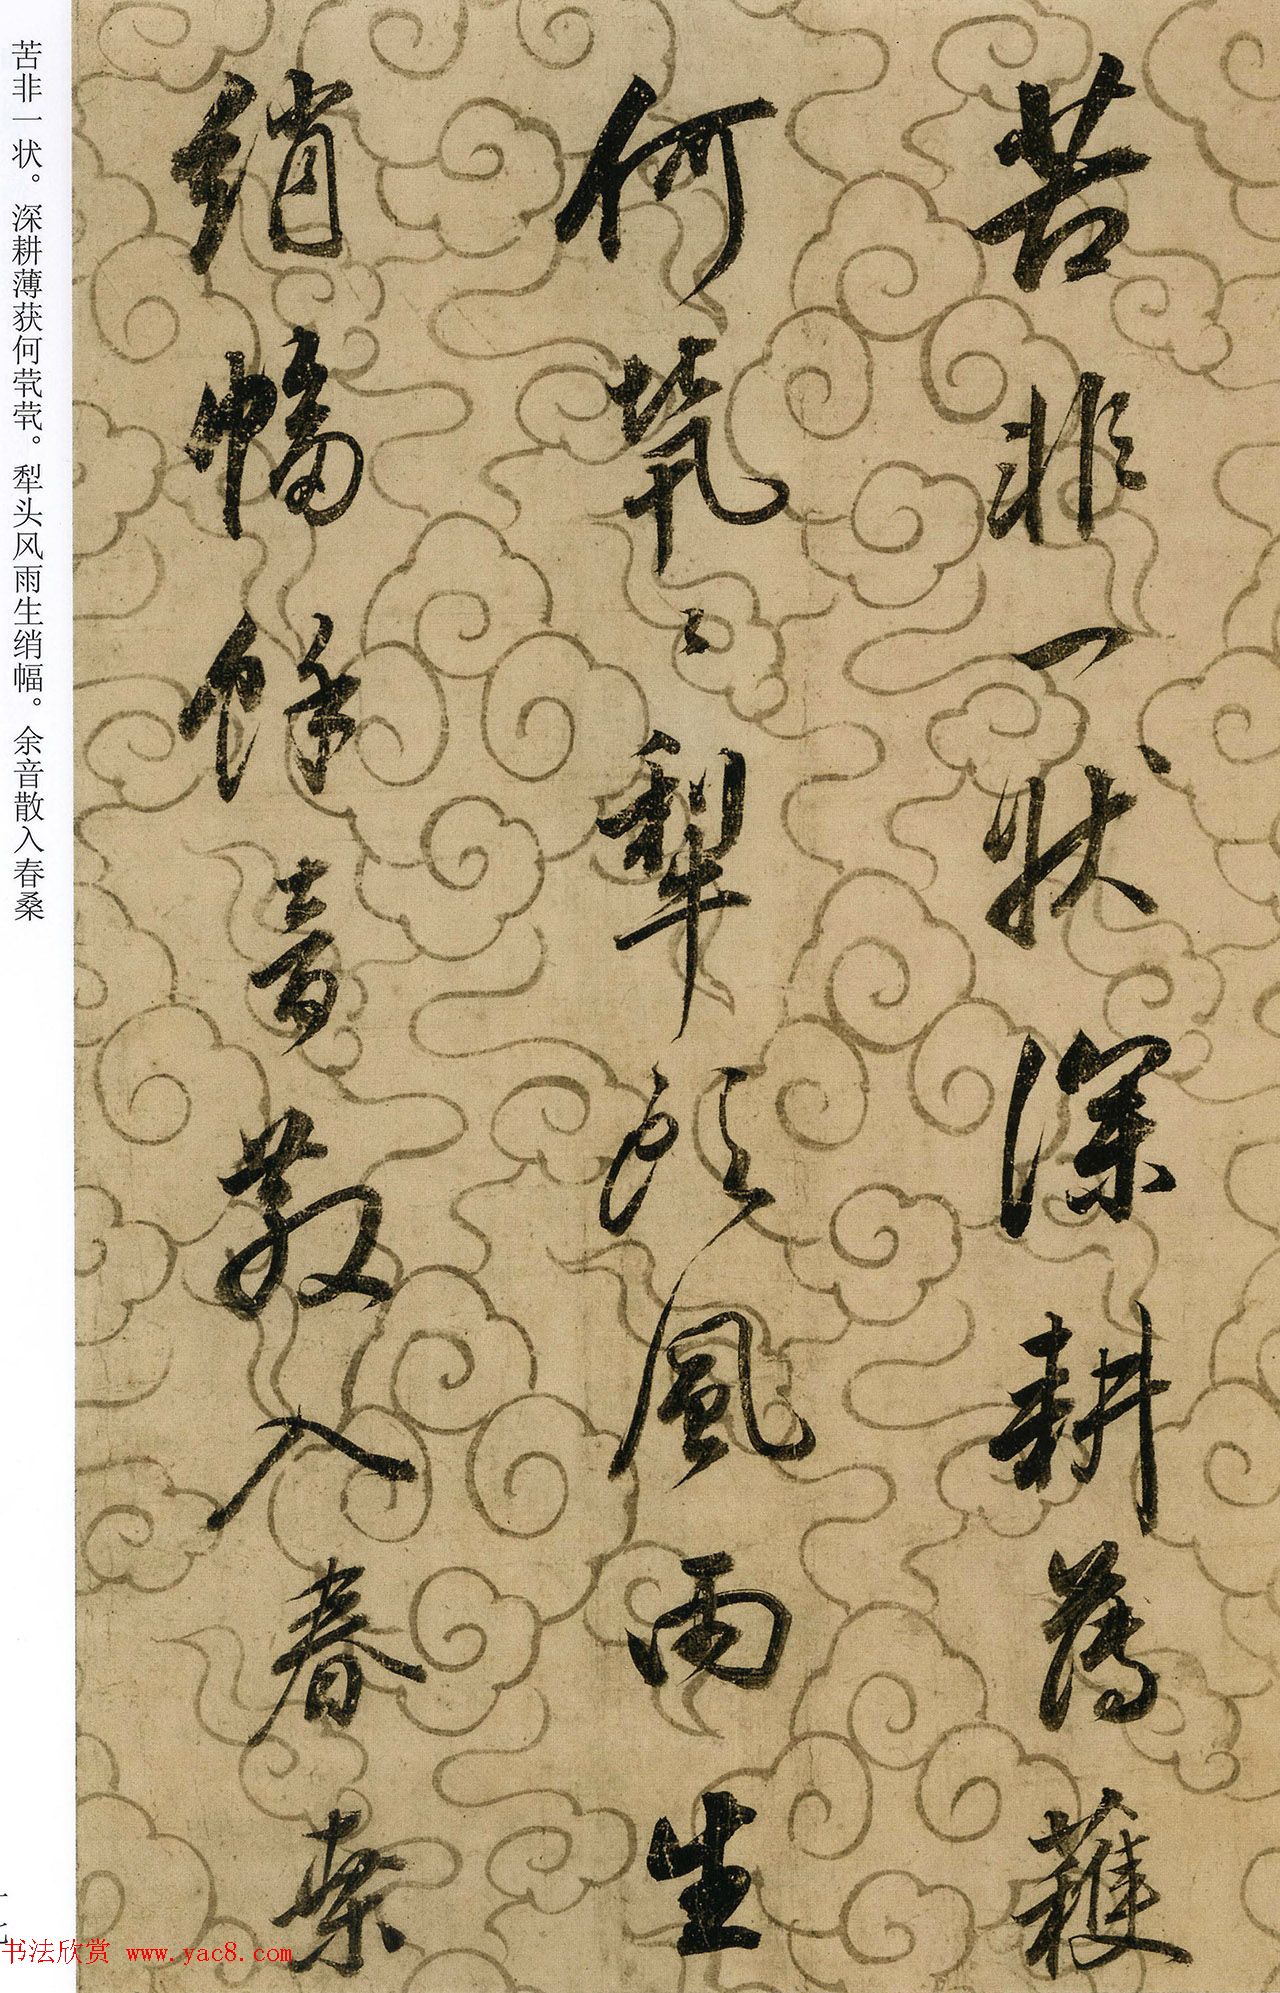 苦非一狀深耕薄穫
何煢〻犁頭風雨生
綃幅餘音散入春桑
苦非一状。深耕薄获何茕茕。犁头风雨生绡幅。余音散入春桑
书法欣赏 www.yac8.com